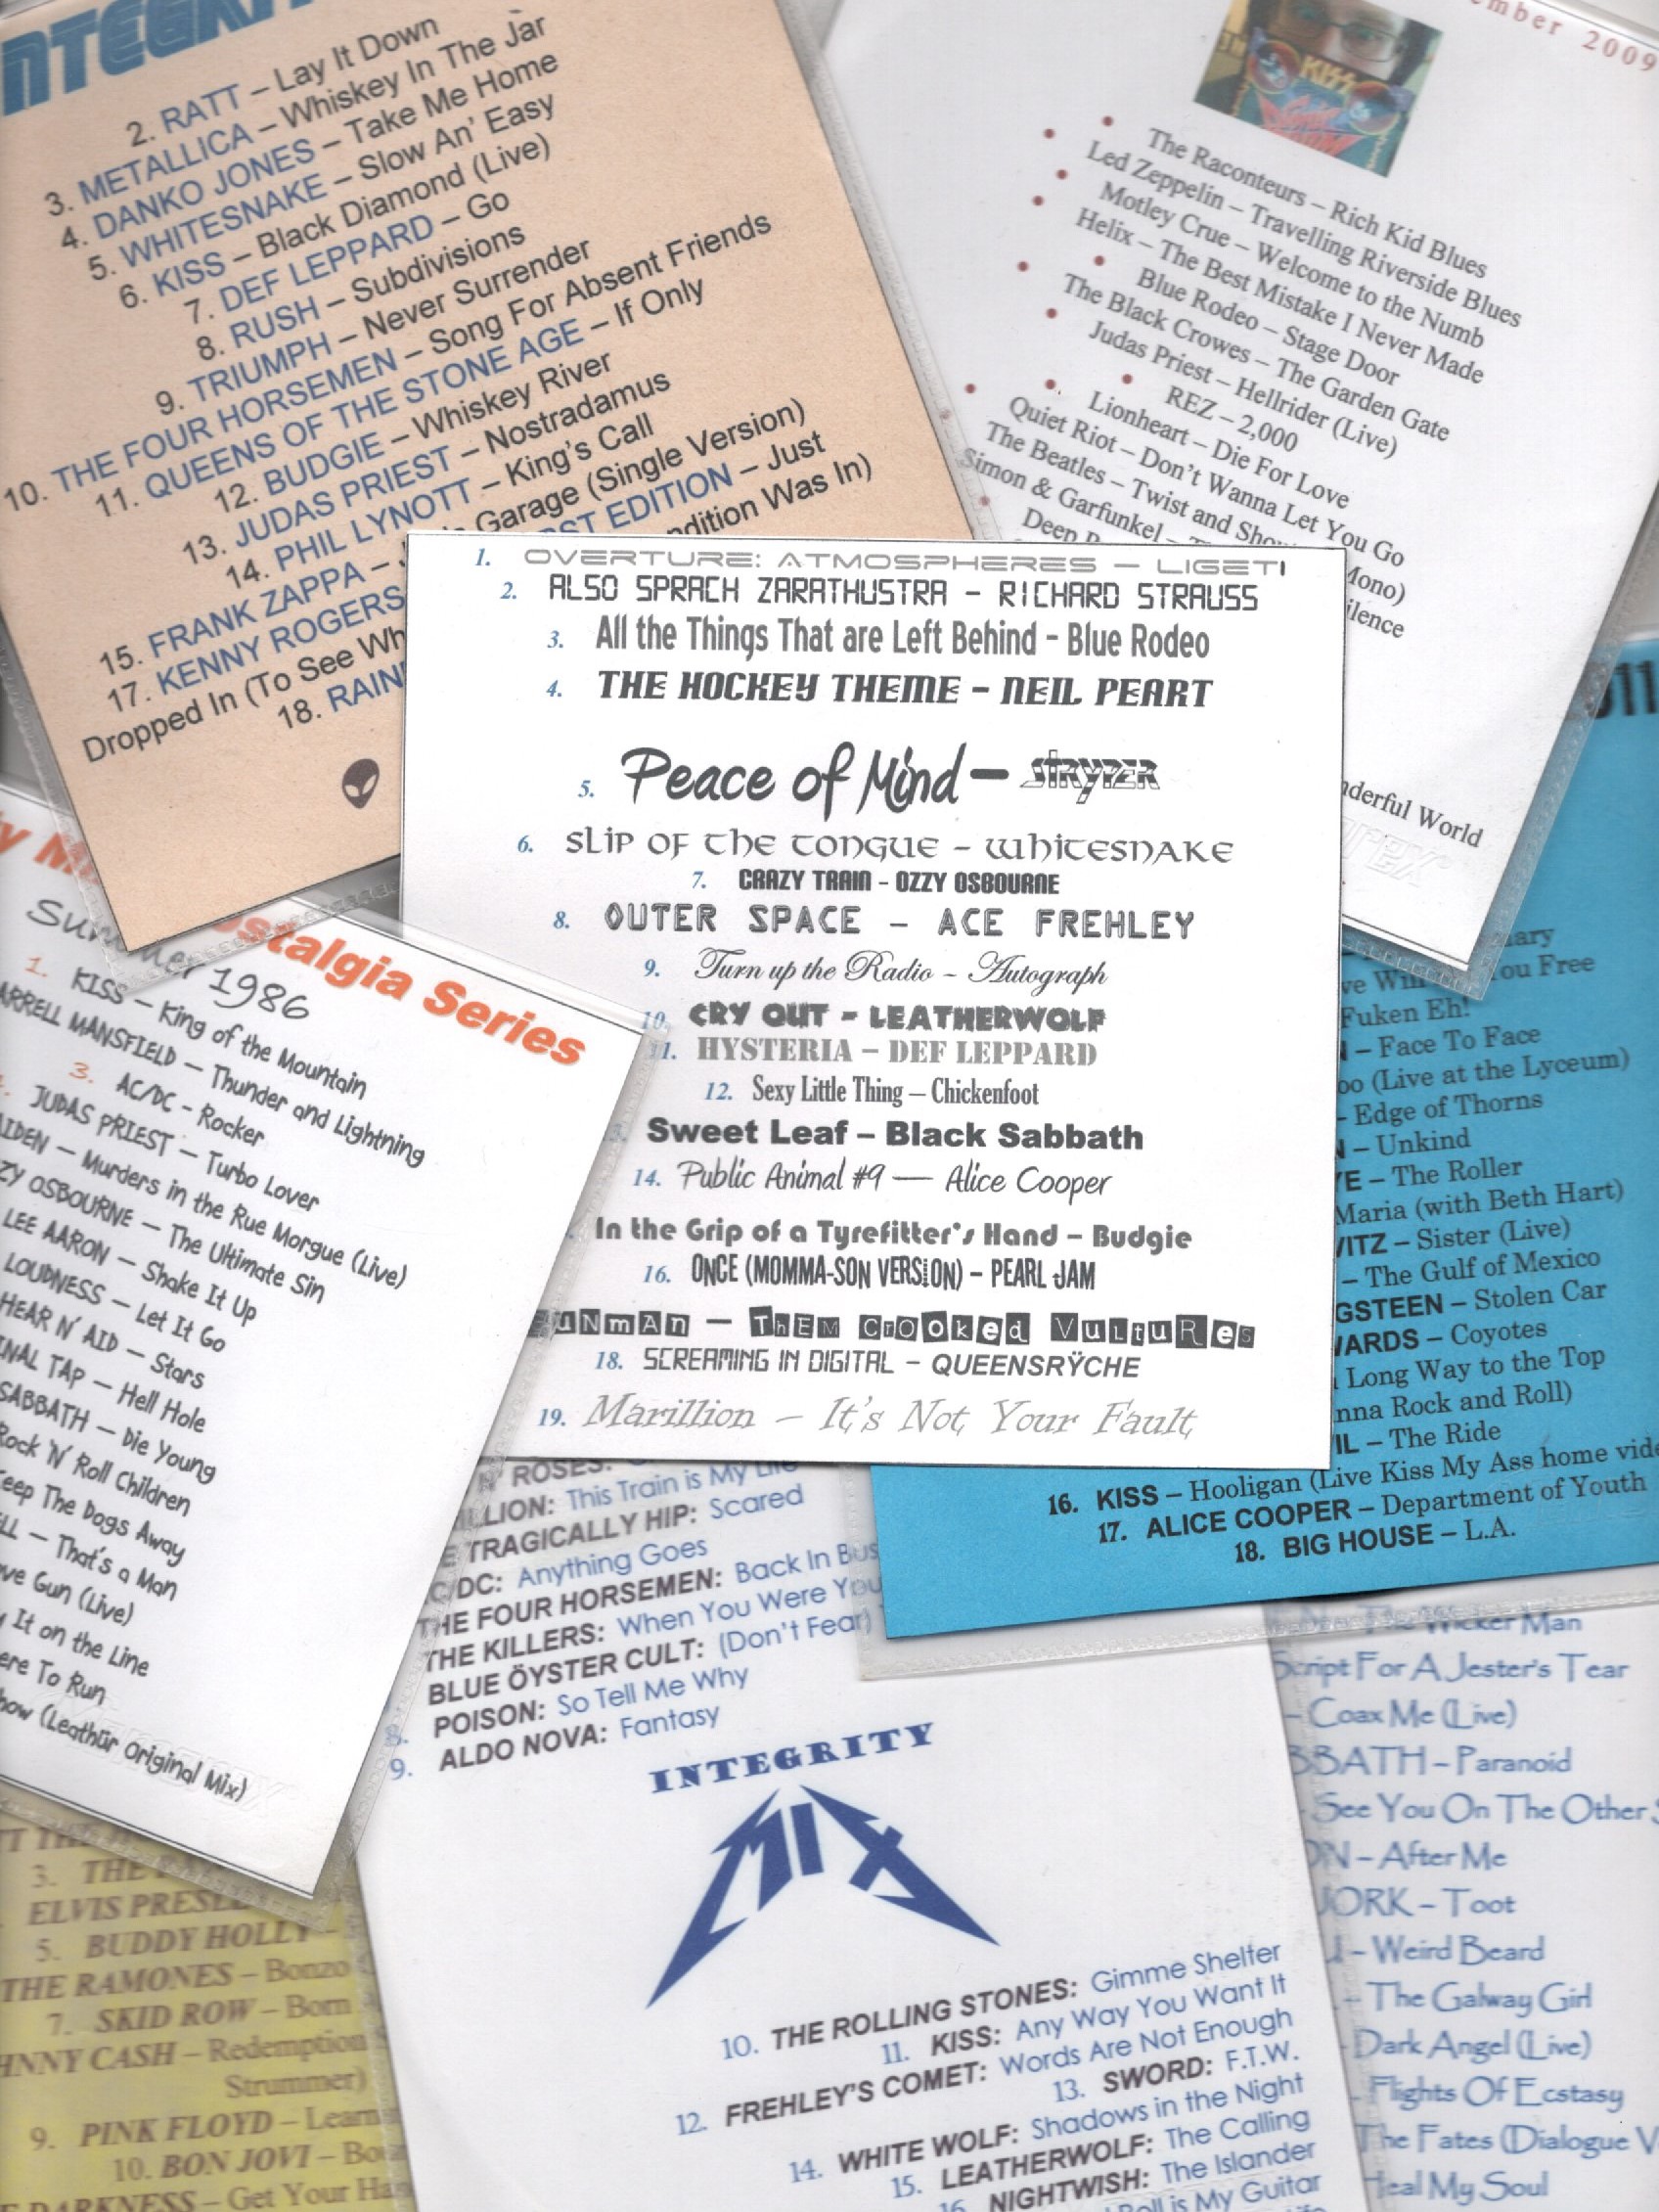 NTEGRI
2. RATT – Lay It Down
3. METALLICA – Whiskey In The Jar
4. DANKO JONES – Take Me Home
5. WHITESNAKE – Slow An' Easy
6. KISS – Black Diamond (Live)
7. DEF LEPPARD – Go
8. RUSH – Subdivisions
9. TRIUMPH – Never Surrender
10. THE FOUR HORSEMEN – Song For Absent Friends
11. QUEENS OF THE STONE AGE – If Only
12. BUDGIE – Whiskey River
13. JUDAS PRIEST – Nostradamus
14. PHIL LYNOTT – King's Call
15. FRANK ZAPPA – J Garage (Single Version)
17. KENNY ROGERS ST EDITION – Just
Dropped In (To See Wh ndition Was In)
18. RAIN
ember 2009
KISS
The Raconteurs – Rich Kid Blues
Led Zeppelin – Travelling Riverside Blues
Motley Crue – Welcome to the Numb
Helix – The Best Mistake I Never Made
Blue Rodeo – Stage Door
The Black Crowes – The Garden Gate
Judas Priest – Hellrider (Live)
REZ – 2,000
Lionheart – Die For Love
Quiet Riot – Don't Wanna Let You Go
The Beatles – Twist and Sho Mono)
Simon & Garfunkel – ilence
Deep
nderful World
1. OVERTURE: ATMOSPHERES – LIGETI
2. ALSO SPRACH ZARATHUSTRA – RICHARD STRAUSS
3. All the Things That are Left Behind – Blue Rodeo
4. THE HOCKEY THEME – NEIL PEART
5. Peace of Mind – STRYPER
6. SLIP OF THE TONGUE – WHITESNAKE
7. CRAZY TRAIN – OZZY OSBOURNE
8. OUTER SPACE – ACE FREHLEY
9. Turn up the Radio – Autograph
10. CRY OUT – LEATHERWOLF
11. HYSTERIA – DEF LEPPARD
12. Sexy Little Thing – Chickenfoot
Sweet Leaf – Black Sabbath
14. Public Animal #9 — Alice Cooper
In the Grip of a Tyrefitter's Hand – Budgie
16. ONCE (MOMMA-SON VERSION) – PEARL JAM
UNMAN – THEM CROOKED VULTURES
18. SCREAMING IN DIGITAL – QUEENSRŸCHE
19. Marillion – It's Not Your Fault
y M ostalgia Series
Summer 1986
1. KISS – King of the Mountain
ARRELL MANSFIELD – Thunder and Lightning
3. AC/DC - Rocker
JUDAS PRIEST – Turbo Lover
AIDEN – Murders in the Rue Morgue (Live)
ZY OSBOURNE – The Ultimate Sin
LEE AARON – Shake It Up
LOUDNESS – Let It Go
HEAR N' AID – Stars
INAL TAP – Hell Hole
SABBATH – Die Young
Rock 'N' Roll Children
eep The Dogs Away
LL – That's a Man
ve Gun (Live)
It on the Line
ere To Run
how (Leathür Original Mix)
011
ary
ve Wi ou Free
Fuken Eh!
– Face To Face
oo (Live at the Lyceum)
– Edge of Thorns
N – Unkind
YE – The Roller
Maria (with Beth Hart)
VITZ – Sister (Live)
– The Gulf of Mexico
GSTEEN – Stolen Car
ARDS – Coyotes
Long Way to the Top
nna Rock and Roll)
IL – The Ride
16. KISS – Hooligan (Live Kiss My Ass home vide
17. ALICE COOPER – Department of Youth
18. BIG HOUSE – L.A.
N' ROSES:
ILLION: This Train is My Life
E TRAGICALLY HIP: Scared
C/DC: Anything Goes
THE FOUR HORSEMEN: Back In Bus
THE KILLERS: When You Were You
BLUE ÖYSTER CULT: (Don't Fear)
8. POISON: So Tell Me Why
9. ALDO NOVA: Fantasy
INTEGRITY
MIX
10. THE ROLLING STONES: Gimme Shelter
11. KISS: Any Way You Want It
12. FREHLEY'S COMET: Words Are Not Enough
13. SWORD: F.T.W.
14. WHITE WOLF: Shadows in the Night
15. LEATHERWOLF: The Calling
16. NIGHTWISH: The Islander
Roll is My Guitar
3. THE
ELVIS PRESL
5. BUDDY HOLLY –
THE RAMONES – Bonzo
7. SKID ROW – Born
HNNY CASH – Redemption
Strummer)
9. PINK FLOYD – Learn
10. BON JOVI – Bo
DARKNESS – Get Your Ha
The Wicker Man
Script For A Jester's Tear
– Coax Me (Live)
BBATH – Paranoid
See You On The Other S
ON – After Me
JORK – Toot
– Weird Beard
– The Galway Girl
Dark Angel (Live)
– Flights Of Ecstasy
The Fates (Dialogue V
Heal My Soul